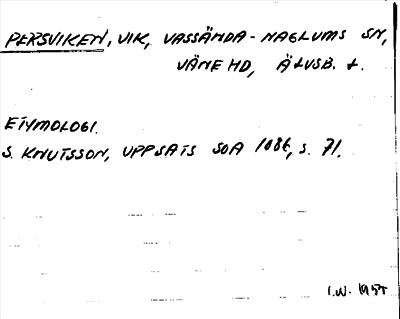 PERSVIKEN, VIK, VASSÄNDA-NAGLUMS SN,
VÄNE HD, ÄLVSB. L.
ETYMOLOGI.
S. KNUTSSON, UPPSATS SOA 1086, S. 71.
I.W.